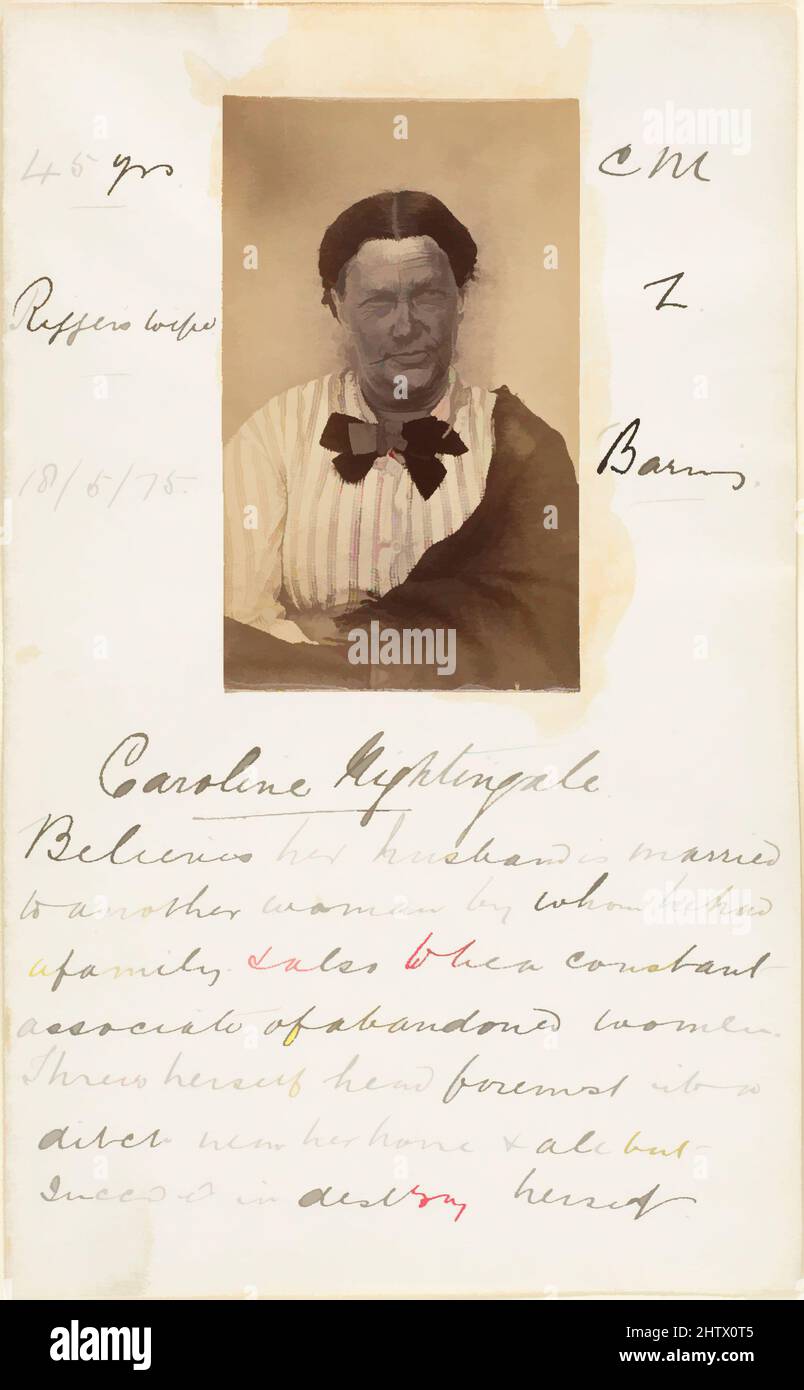 45 yrs
C M
wife
18/5/75.
Caroline Nightingale
Believes her husband is married
to another woman by whom he has
a family & also to be a constant
associate of abandoned women.
Threw herself head foremost into a
ditch near her home & all but
in destroy herself
alamy
alamy
Image ID: 2HTX0T5
www.alamy.com